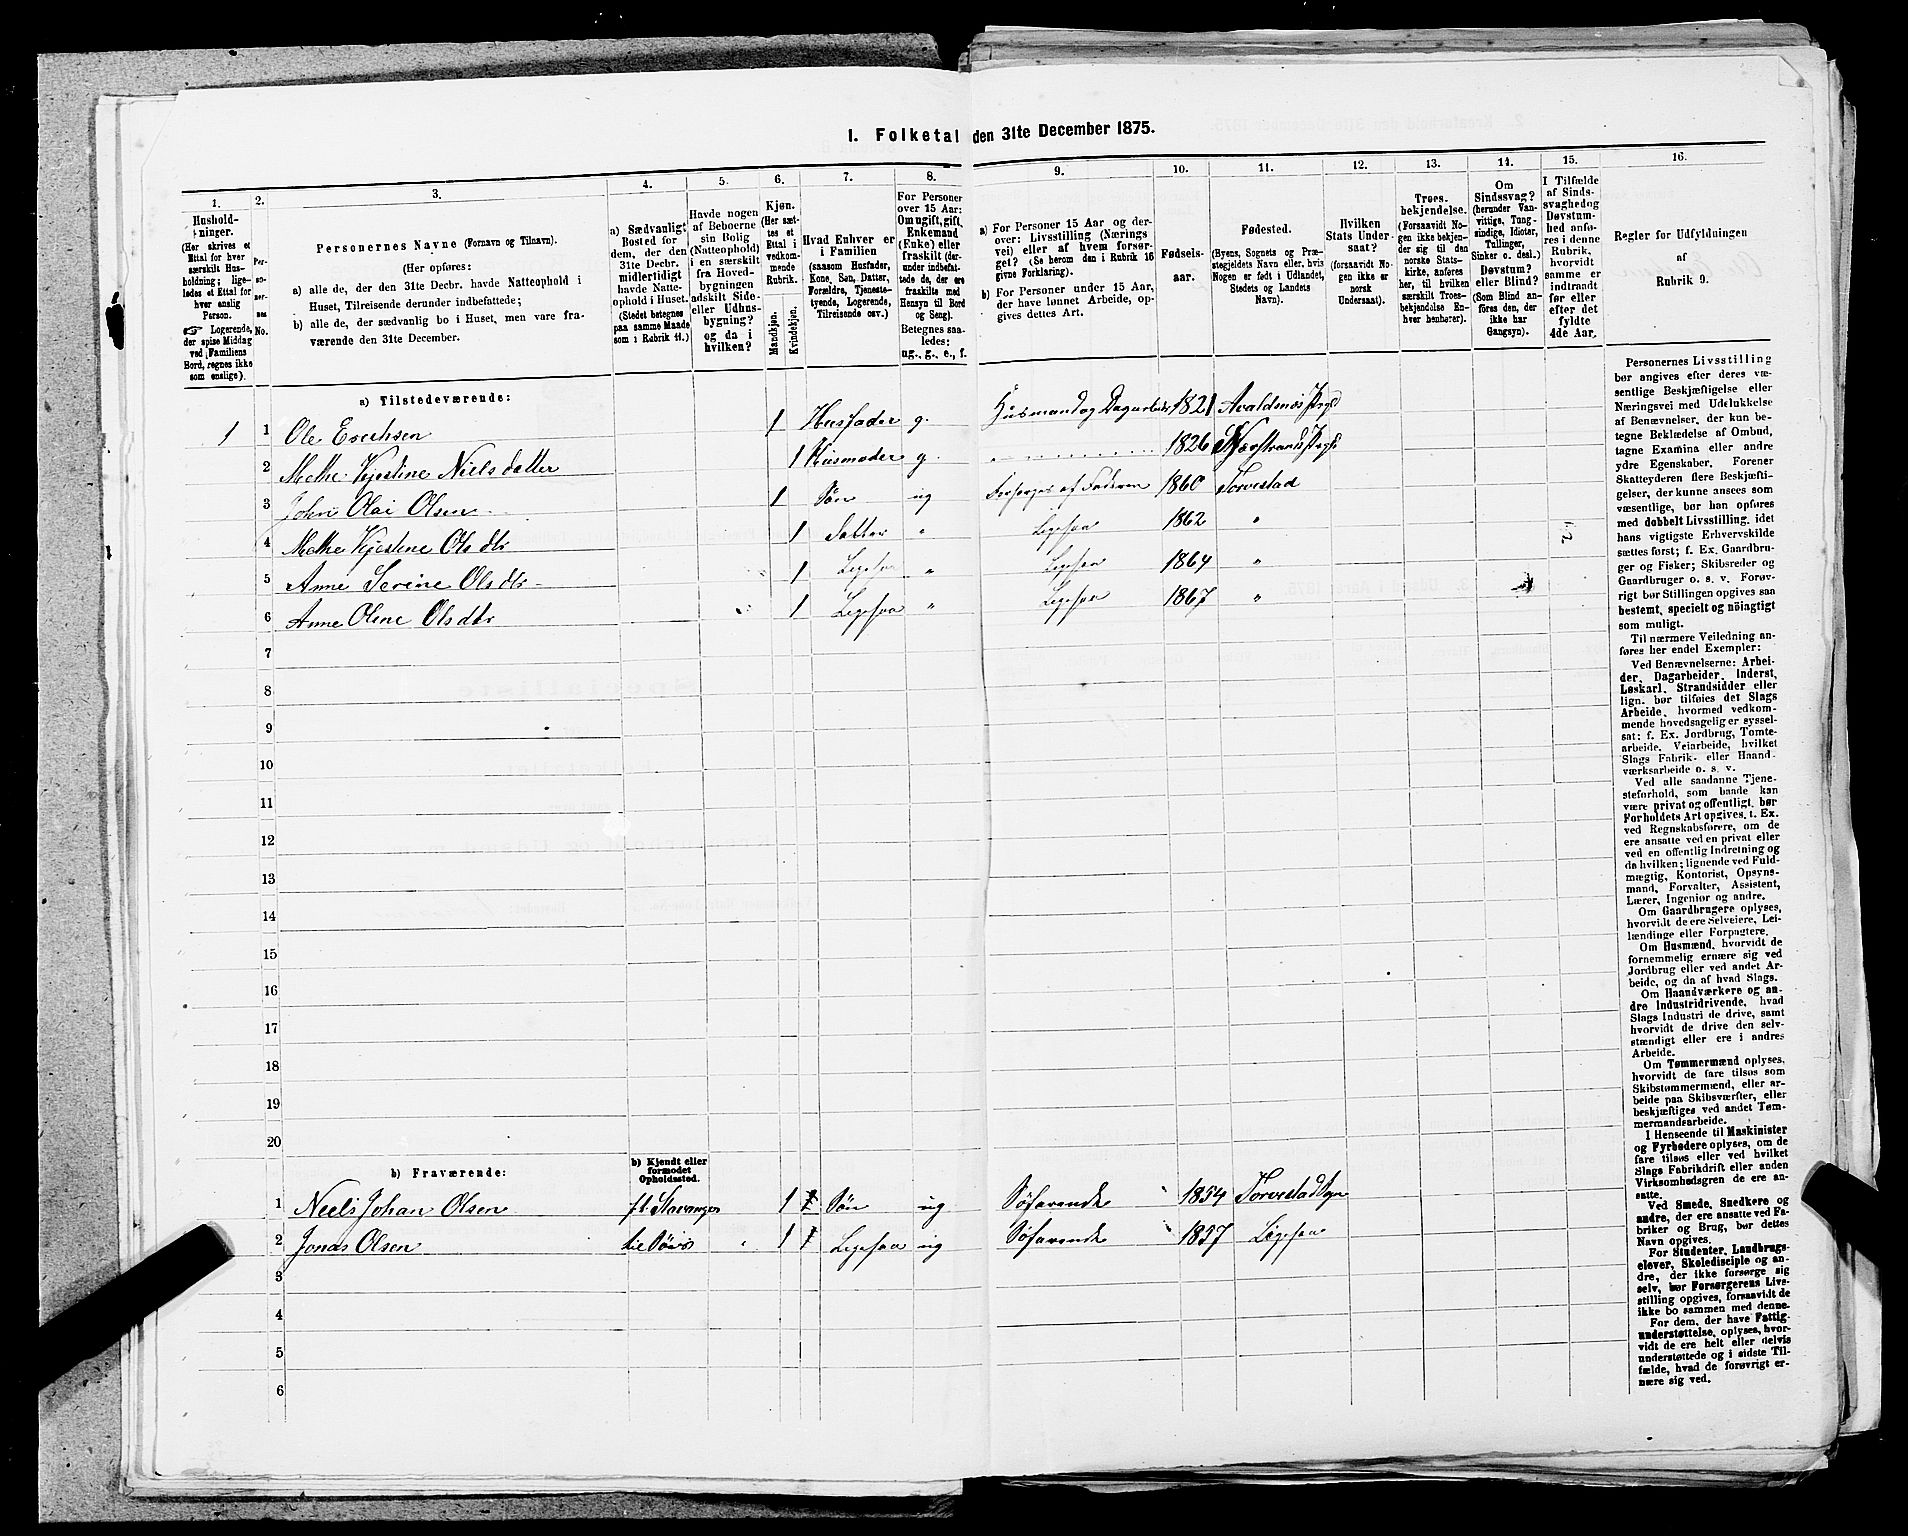 I. Folketal den 31te December 1875.
1.
2.
3.
4.
5.
6.
7.
8.
9.
10.
11.
12.
13.
14.
15.
16.
Hushold-
ninger.
(Her skrives et
Ettal for hver
særskilt Hus-
holdning; lige-
ledes et Ettal for
hver enslig
Person.
☞ Logerende,
der spise Middag
ved Familiens
Bord, regnes ikke
som enslige).
Per-
so-
ner-
nes
No.
Personernes Navne (Fornavn og Tilnavn).
(Her opføres:
a) alle de, der den 31te Decbr. havde Natteophold i
Huset, Tilreisende derunder indbefattede;
b) alle de, der sædvanlig bo i Huset, men vare fra-
værende den 31te December.
a) Sædvanligt
Bosted for
dem, der den
31te Decbr.
midlertidigt
havde Natte-
ophold i Huset.
(Stedet betegnes
paa samme Maade
som i Rubrik 11.)
Havde nogen
af Beboerne
sin Bolig
(Natteophold)
i en særskilt
fra Hoved-
bygningen
adskilt Side-
eller Udhus-
bygning?
og da i
hvilken?
Kjøn.
(Her sæt-
tes et
Ettal i
vedkom-
mende
Rubrik.
Mandkjøn.
Kvindekjøn.
Hvad Enhver er
i Familien
(saasom Husfader,
Kone, Søn, Datter,
Forældre, Tjeneste-
tyende, Logerende,
Tilreisende osv.)
For Personer
over 15 Aar:
Om ugift, gift,
Enkemand
(Enke) eller
fraskilt (der-
under indbefat-
tede de, der ere
fraskilte med
Hensyn til Bord
og Seng).
Betegnes saa-
ledes:
ug., g., e., f.
a) For Personer 15 Aar og der-
over: Livsstilling (Nærings
vei) eller af hvem forsør-
get? (Se herom den i Rubrik 16
givne Forklaring).
b) For Personer under 15 Aar,
der have lønnet Arbeide, op-
gives dettes Art.
Fødsels-
aar.
Fødested.
(Byens, Sognets og Præ-
stegjeldets Navn eller, hvis
Nogen er født i Udlandet,
Stedets og Landets
Navn).
Hvilken
Stats Under-
saat?
(forsaavidt No-
gen ikke er
norsk
Undersaat).
Troes-
bekjendelse.
(Forsaavidt No-
gen ikke bekjen-
der sig til den
norske Stats-
kirke, anføres
her, til hvilken
særskilt Troes-
bekjendelse En-
hver henhører).
Om
Sindssvag?
(herunder Van-
vittige, Tung-
sindige, Idioter,
Tullinger,
Sinker o. desl.)
Døvstum?
eller Blind?
(Som Blind an-
føres den, der
ikke har
Gangsyn).
I Tilfælde
af Sinds-
svaghed og
Døvstum-
hed anfø-
res i denne
Rubrik,
hvorvidt
samme er
indtraadt
før eller
efter det
fyldte
4de Aar.
Regler for Udfyldningen
af
Rubrik 9.
a) Tilstedeværende:
1 1 Ole Erichsen 1 Husfader g. Husmand og Dagarbeider 1821 Avaldsnes Prgd
2 Methe Kjestine Nielsdatter 1 Husmoder g. " 1826 Nærstrands Prgd
3 John Olai Olsen 1 Søn ug Forsørges af Faderen 1860 Torvestad
4 Methe Kjestine Olsdtr 1 Datter " Ligesaa 1862 "
5 Anne Serine Olsdtr 1 Ligesaa " Ligesaa 1864 "
6 Anne Oline Olsdtr 1 Ligesaa " Ligesaa 1867 "
7
8
9
10
11
12
13
14
15
16
17
18
19
20
b) Fraværende:
b) Kjendt eller
formodet
Opholdssted.
1 Niels Johan Olsen f.t. Stavanger 1 Søn ug Søfarende 1854 Torvestad Sogn
2 Jonas Olsen til Søes 1 Ligesaa ug Søfarende 1857 Ligesaa
3
4
5
6
Personernes Livsstilling
bør angives efter deres væ-
sentlige Beskjæftigelse eller
Næringsvei med Udelukkelse
af Benævnelser, der kun be-
tegne Beklædelse af Ombud,
tagne Examina eller andre
ydre Egenskaber. Forener
Skatteyderen flere Beskjæfti-
gelser, der kunne ansees som
væsentlige, bør han opføres
med dobbelt Livsstilling, idet
hans vigtigste Erhvervskilde
sættes først; f. Ex. Gaardbru-
ger og Fisker; Skibsreder og
Gaardbruger o. s. v. Forøv-
rigt bør Stillingen opgives saa
bestemt, specielt og nöiagtigt
som muligt.
Til nærmere Veiledning an-
føres her endel Exempler:
Ved Benævnelserne: Arbei-
der, Dagarbeider, Inderst,
Løskarl, Strandsidder eller
lign. bør tilføies det Slags
Arbeide, hvormed vedkom-
mende hovedsagelig er syssel-
sat; f. Ex. Jordbrug, Tomte-
arbeide, Veiarbeide, hvilket
Slags Fabrik- eller Haand-
værksarbeide o. s. v.
Ved alle saadanne Tjene-
steforhold, som baade kan
være privat og offentligt, bør
Forholdets Art opgives, t. Ex.
ved Regnskabsførere, om de
ere ansatte ved en privat eller
ved en offentlig Indretning og
da hvilken; lignende ved Fuld-
mægtig, Kontorist, Opsyns-
mand, Forvalter, Assistent,
Lærer, Ingeniør og andre.
Om Gaardbrugere oplyses,
hvorvidt de ere Selveiere, Lei-
lændinge eller Forpagtere.
Om Husmænd, hvorvidt de
fornemmelig ernære sig ved
Jordbrug eller ved andet Ar-
beide, og da af hvad Slags.
Om Haandværkere og an-
dre Industridrivende, hvad
Slags Industri de drive, samt
hvorvidt de drive den selv-
stændigt eller ere i andres
Arbeide.
Om Tømmermænd oplyses,
hvorvidt de fare tilsøs som
Skibstømmermænd, eller ar-
beide paa Skibsværfter, eller
beskjæftiges ved andet Tøm-
mermandsarbeide.
I Henseende til Maskinister
og Fyrbødere oplyses, om de
fare tilsøs eller ved hvilket
Slags Fabrikdrift eller anden
Virksomhedsgren de ere an-
satte.
Ved Smede, Snedkere og
andre, der ere ansatte ved Fa-
briker og Brug, bør dettes
Navn opgives.
For Studenter, Landbrugs-
elever, Skoledisciple og an-
dre, der ikke forsørge sig
selv, bør Forsørgerens Livs-
stilling opgives, forsaavidt de
ikke bo sammen med denne.
For dem, der have Fattig-
understøttelse, oplyses, hvor-
vidt de ere helt eller delvis
understøttede og i sidste Til-
fælde, hvad de forøvrigt er-
nære sig ved.